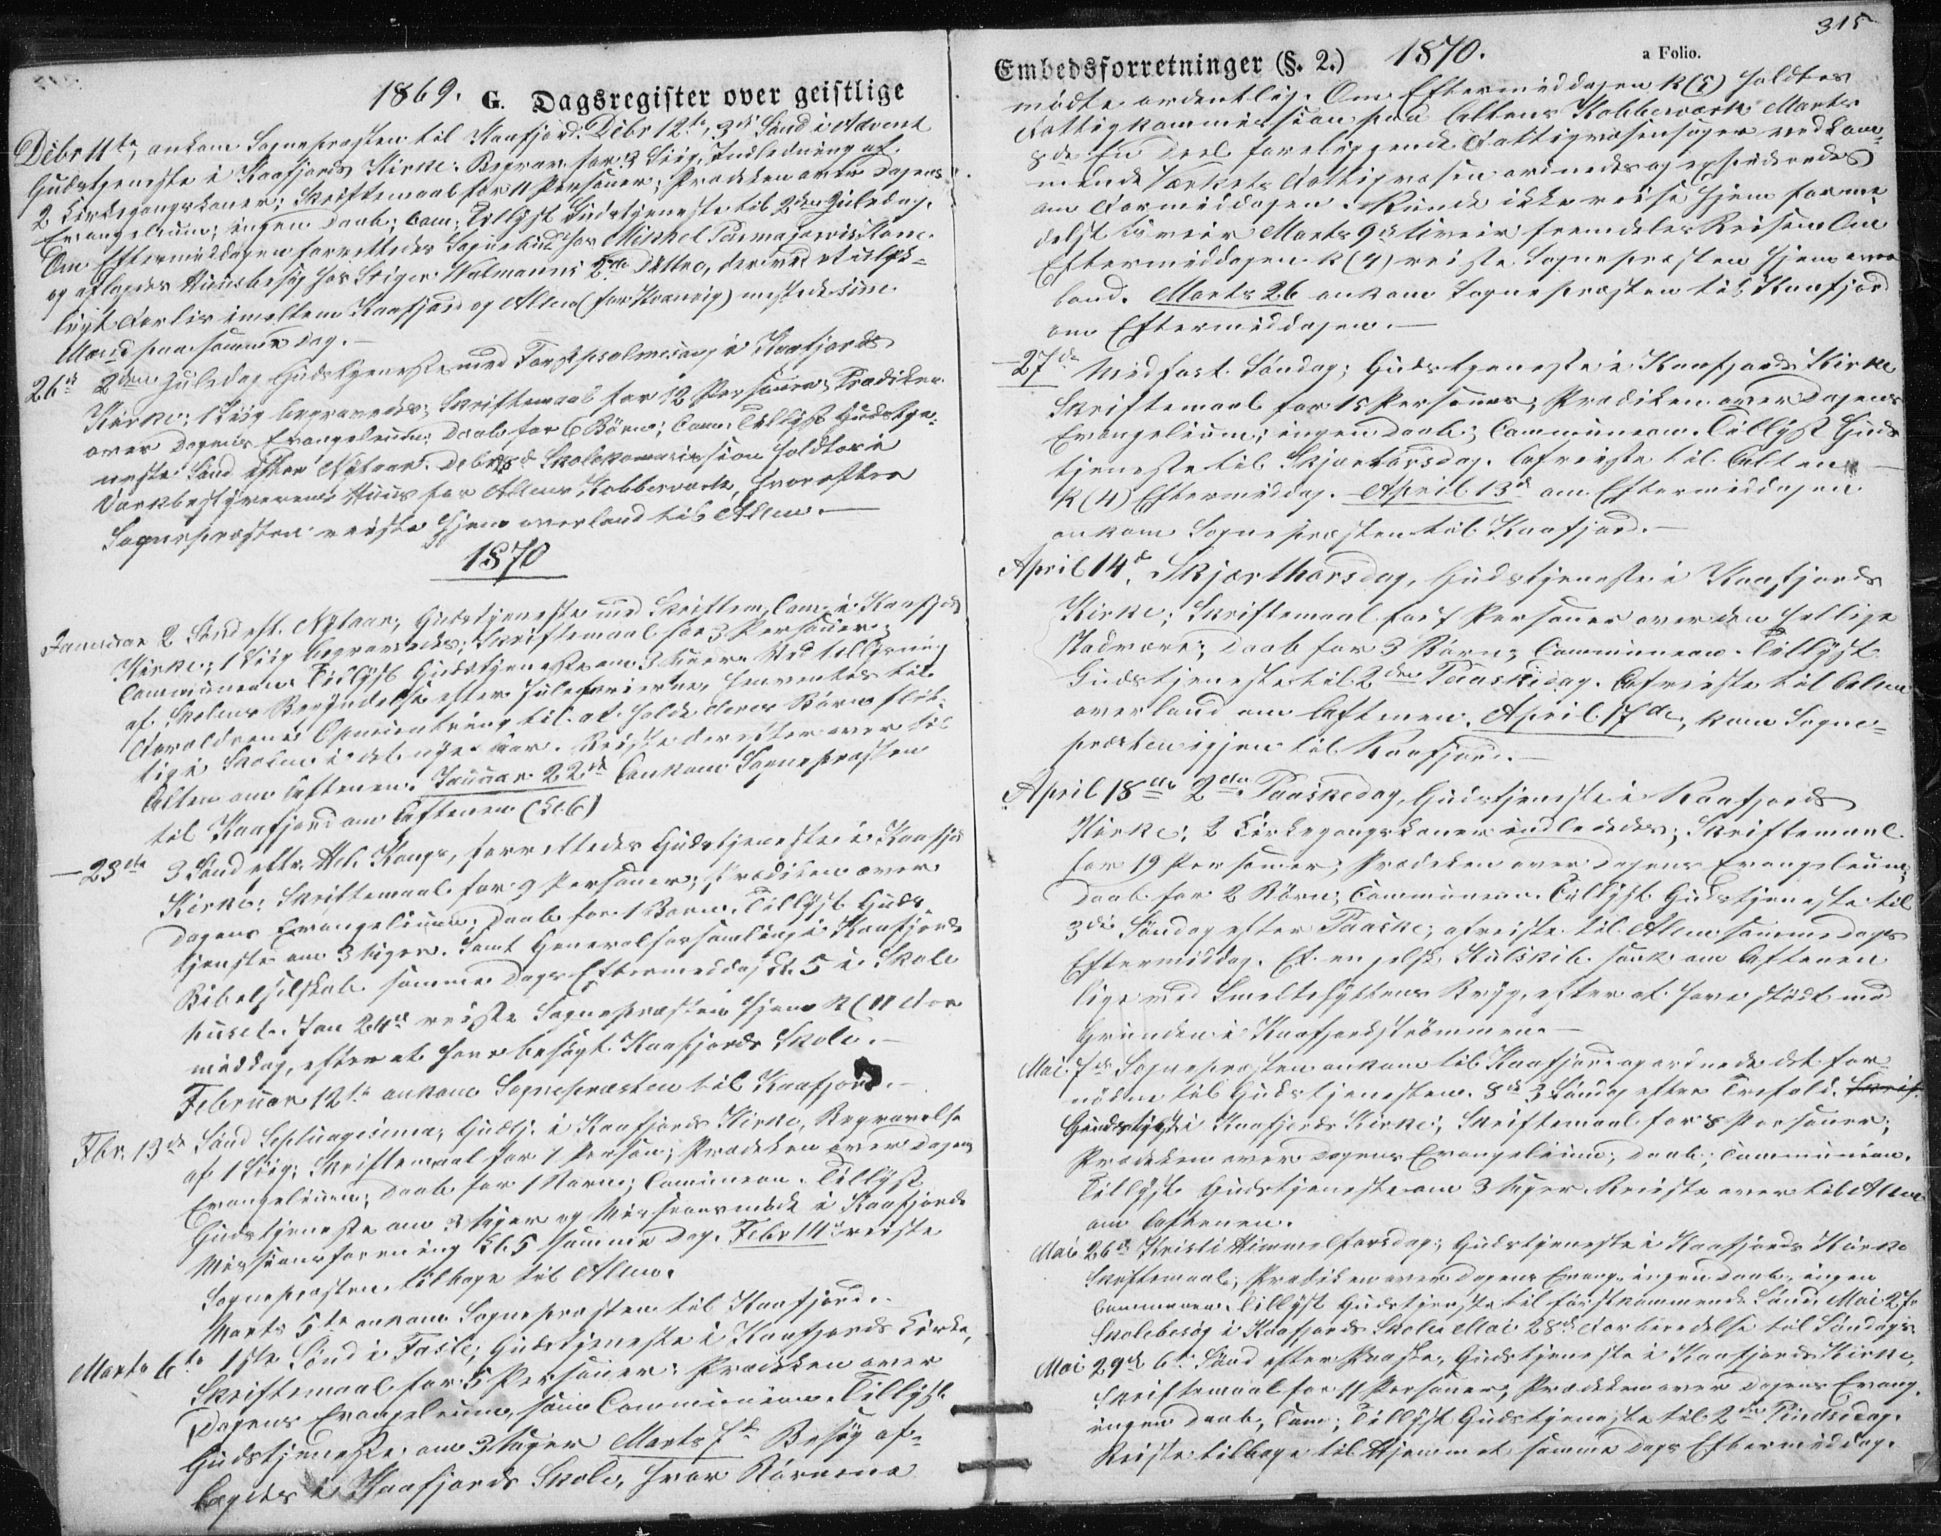 1869. G. Dagsregister over geistlige
Debr 11te, ankom Sognepræsten til Kaafjord. Debr 12te, 3die Sønd i Advent
Gudstjeneste i Kaafjords Kirke. Begrav. for 3 Liig, Indledning af
2 Kirkegangskoner; Skriftemaal for 11 Personer; Præken over Dagens
Evangelium; ingen Daab; Com; Tillyst Gudstjeneste til 2den Juledag.
Om Eftermiddagen forrettedes Sognebud hos Mikkel
og aflagdes Huusbesøg hos Stiger Walmanns Enke, der ved et ulyk-
ligt Forliis imellem Kaafjord og Alten (for Kvænvig) mistede sin
Mand paa samme Dag.
26de 2den Juledag Gudstjeneste med Forspsalmesang i Kaafjords
Kirke; 1 Liig begravedes; Skriftemaal for 12 Personer; Prædiken
over Dagens Evangelium; Daab for 6 Børn; Com; Tillyst Gudstje-
neste Sønd efter Nytaar. Debr Skolekommission holdtes i
Værkbestyrerens Huus for Altens Kobberværk, hvorefter
Sognepræsten reiste hjem overland til Alten.
1870
Januar 2 Sønd eft. Nytaar, Gudstjeneste med Skriftem, Com. i Kaafjords
Kirke; 1 Liig begravedes; Skriftemaal for 3 Personer;
Communion. Tillyst Gudstjeneste om 3 Uger. Ved tillysning
af Skolens Begyndelse efter Juleferierne, henventes til
Forældrene Opmuntring til at holde deres Børn flit-
tig i Skolen i det nye Aar. Reiste derefter over til
Alten om Aftenen. Januar 22de ankom Sognepræsten
til Kaafjord om Aftenen (Kl 6)
— 23de 3 Sønd eftr. Hel. Konge, forrettedes Gudstjeneste i Kaafjords
Kirke: Skriftemaal for 9 Personer; Prædiken over
Dagens Evangelium; Daab for 1 Barn. Tillyst Guds-
tjeneste om 3 Uger. Samt Generalforsamling i Kaafjords
Bibelselskab samme Dags Eftermiddag Kl. 5 i Skole
huset. Jan 24de reiste Sognepræsten hjem Kl 11 For
middag, efter at have besøgt Kaafjords Skole.
Februar 12te ankom Sognepræsten til Kaafjord.
Fbr. 13de Sønd Septuagesima; Gudstj. i Kaafjords Kirke, Begravelse
af 1 Liig; Skriftemaal for 1 Person; Prædiken over Dagens
Evangelium; Daab for 1 Barn; Comunion. Tillyst
Gudstjeneste om 3 Uger og Missionsmøde i Kaafjords
Missionsforening Kl. 5 samme Dag. Febr 14de reiste
Sognepræsten tilbage til Alten.
Marts 5te ankom Sognepræsten til Kaafjord.
Marts 6te 1ste Sønd i Faste; Gudstjeneste i Kaafjords Kirke,
Skriftemaal for 5 Personer; Prædiken over
Dagens Evangelium, samt Communion. Tillyst
Gudstjeneste om 3 Uger Marts 7de Besøg af-
lagdes i Kaafjords Skole, hvor Børnene
315
Embedsforretninger (§. 2.) 1870. a Folio.
mødte ordentlig. Om Eftermiddagen Kl (5) holdtes
Fattigkommission paa Altens Kobberværk Marts
8de En Deel foreliggende Fattigvæsenssager vedkom-
mende Værkets Fattigvæsen ordnedes og expederedes
om Formiddagen. Kunde ikke reise hjem forme
delst Uveir Marts 9de Uveir fremdeles Reisen Om
Eftermiddagen Kl (4) reiste Sognepræsten hjem over
land. Marts 26 ankom Sognepræsten til Kaafjord
om Eftermiddagen.
— 27de Midfast Søndag; Gudstjeneste i Kaafjords Kirke
Skriftemaal for 15 Personer; Prædiken over Dagens
Evangelium; ingen Daab; Communion. Tillyst Guds
tjeneste til Skjærtorsdag. Afreiste til Alten
Kl (4) Eftermiddag. April 13de om Eftermiddagen
ankom Sognepræsten til Kaafjord.
April 14de. Skjærthorsdag, Gudstjeneste i Kaafjords
Kirke; Skriftemaal for 7 Personer over den hellige
Nadvere; Daab for 3 Børn; Communion. Tillyst
Gudstjeneste til 2den Paaskedag. Afreiste til Alten
overland om Aftenen. April 17de, kom Sogne-
præsten igjen til Kaafjord.
April 18de 2den Paaskedag, Gudstjeneste i Kaafjords
Kirke; 2 Kirkegangskoner indlededes; Skriftemaal
for 19 Personer; Prædiken over Dagens Evangelium;
Daab for 2 Børn; Communion. Tillyst Gudstjeneste til
3die Søndag efter Paaske; afreiste til Alten samme Dags
Eftermiddag. Et engelsk Kulskib sank om Aftenen
lige ved Smeltehyttens Bryg, efter at have stødt med
Grunden i Kaafjordstrømmen.
Mai 7de Sognepræsten ankom til Kaafjord og ordnede det for-
nødne til Gudstjenesten. 8de 3 Søndag efter
Gudstjst i Kaafjords Kirke; Skriftemaal for 8 Personer;
Prædiken over Dagens Evangelium; Daab; Communion.
Tillyst Gudstjeneste om 3 Uger. Reiste over til Alten
om Aftenen.
Mai 26de Kristi Himmelfartsdag; Gudstjeneste i Kaafjords Kirke
Skriftemaal; Prædiken over Dagens Evang., ingen Daab, ingen
Communion. Tillyst Gudstjeneste til førstkommende Sønd. Mai 27de
Skolebesøg i Kaafjords Skole Mai 28de Forberedelse til Søndags
Mai 29de 6te Sønd efter Paaske, Gudstjeneste i Kaafjords Kirke,
Skriftemaal for 11 Personer; Prædiken over Dagens Evang.
ingen Daab; Com; Tillyst Gudstjeneste til 2den Pindsedag.
Reiste tilbage til Hjemmet samme Dags Eftermiddag.